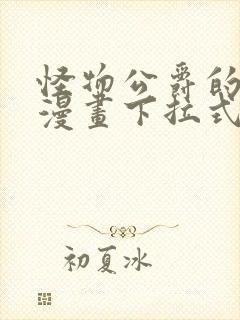 怪物公爵的
漫畫下拉式
初夏冰